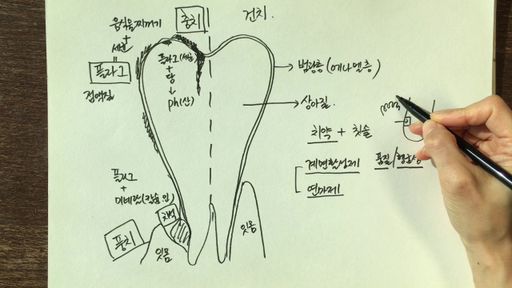 음식물찌꺼기
+
세균
플라그
점액질
충치
건치.
플라그(세균)
+
당
↓
pH(산)
법랑층(에나멜층)
상아질.
치약 + 칫솔
계면활성제
연마제
품질/
플라그
+
미네랄(칼슘 인)
치석
풍치
잇몸
잇몸